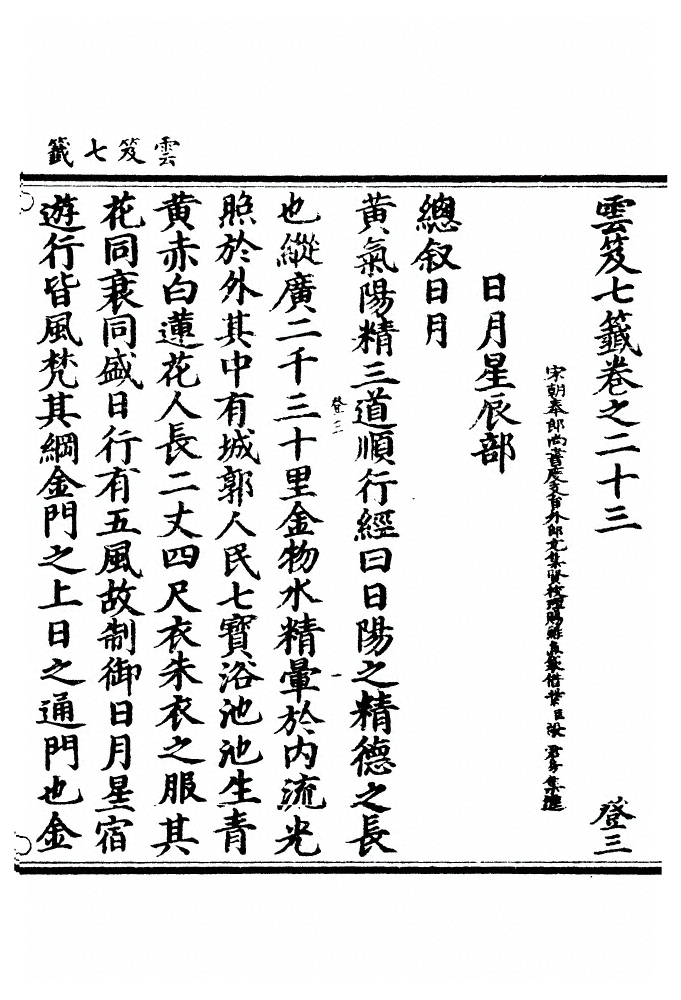 雲笈七籤
雲笈七籤卷之二十三 登三
宋朝奉郎尚書度支員外郎充集賢校理賜緋魚袋借紫臣張君房集進
日月星辰部
總叙日月
黃氣陽精三道順行經曰日陽之精德之長
登三 一
也縱廣二千三十里金物水精暈於內流光
照於外其中有城郭人民七寶浴池池生青
黃赤白蓮花人長二丈四尺衣朱衣之服其
花同衰同盛日行有五風故制御日月星宿
遊行皆風梵其綱金門之上日之通門也金